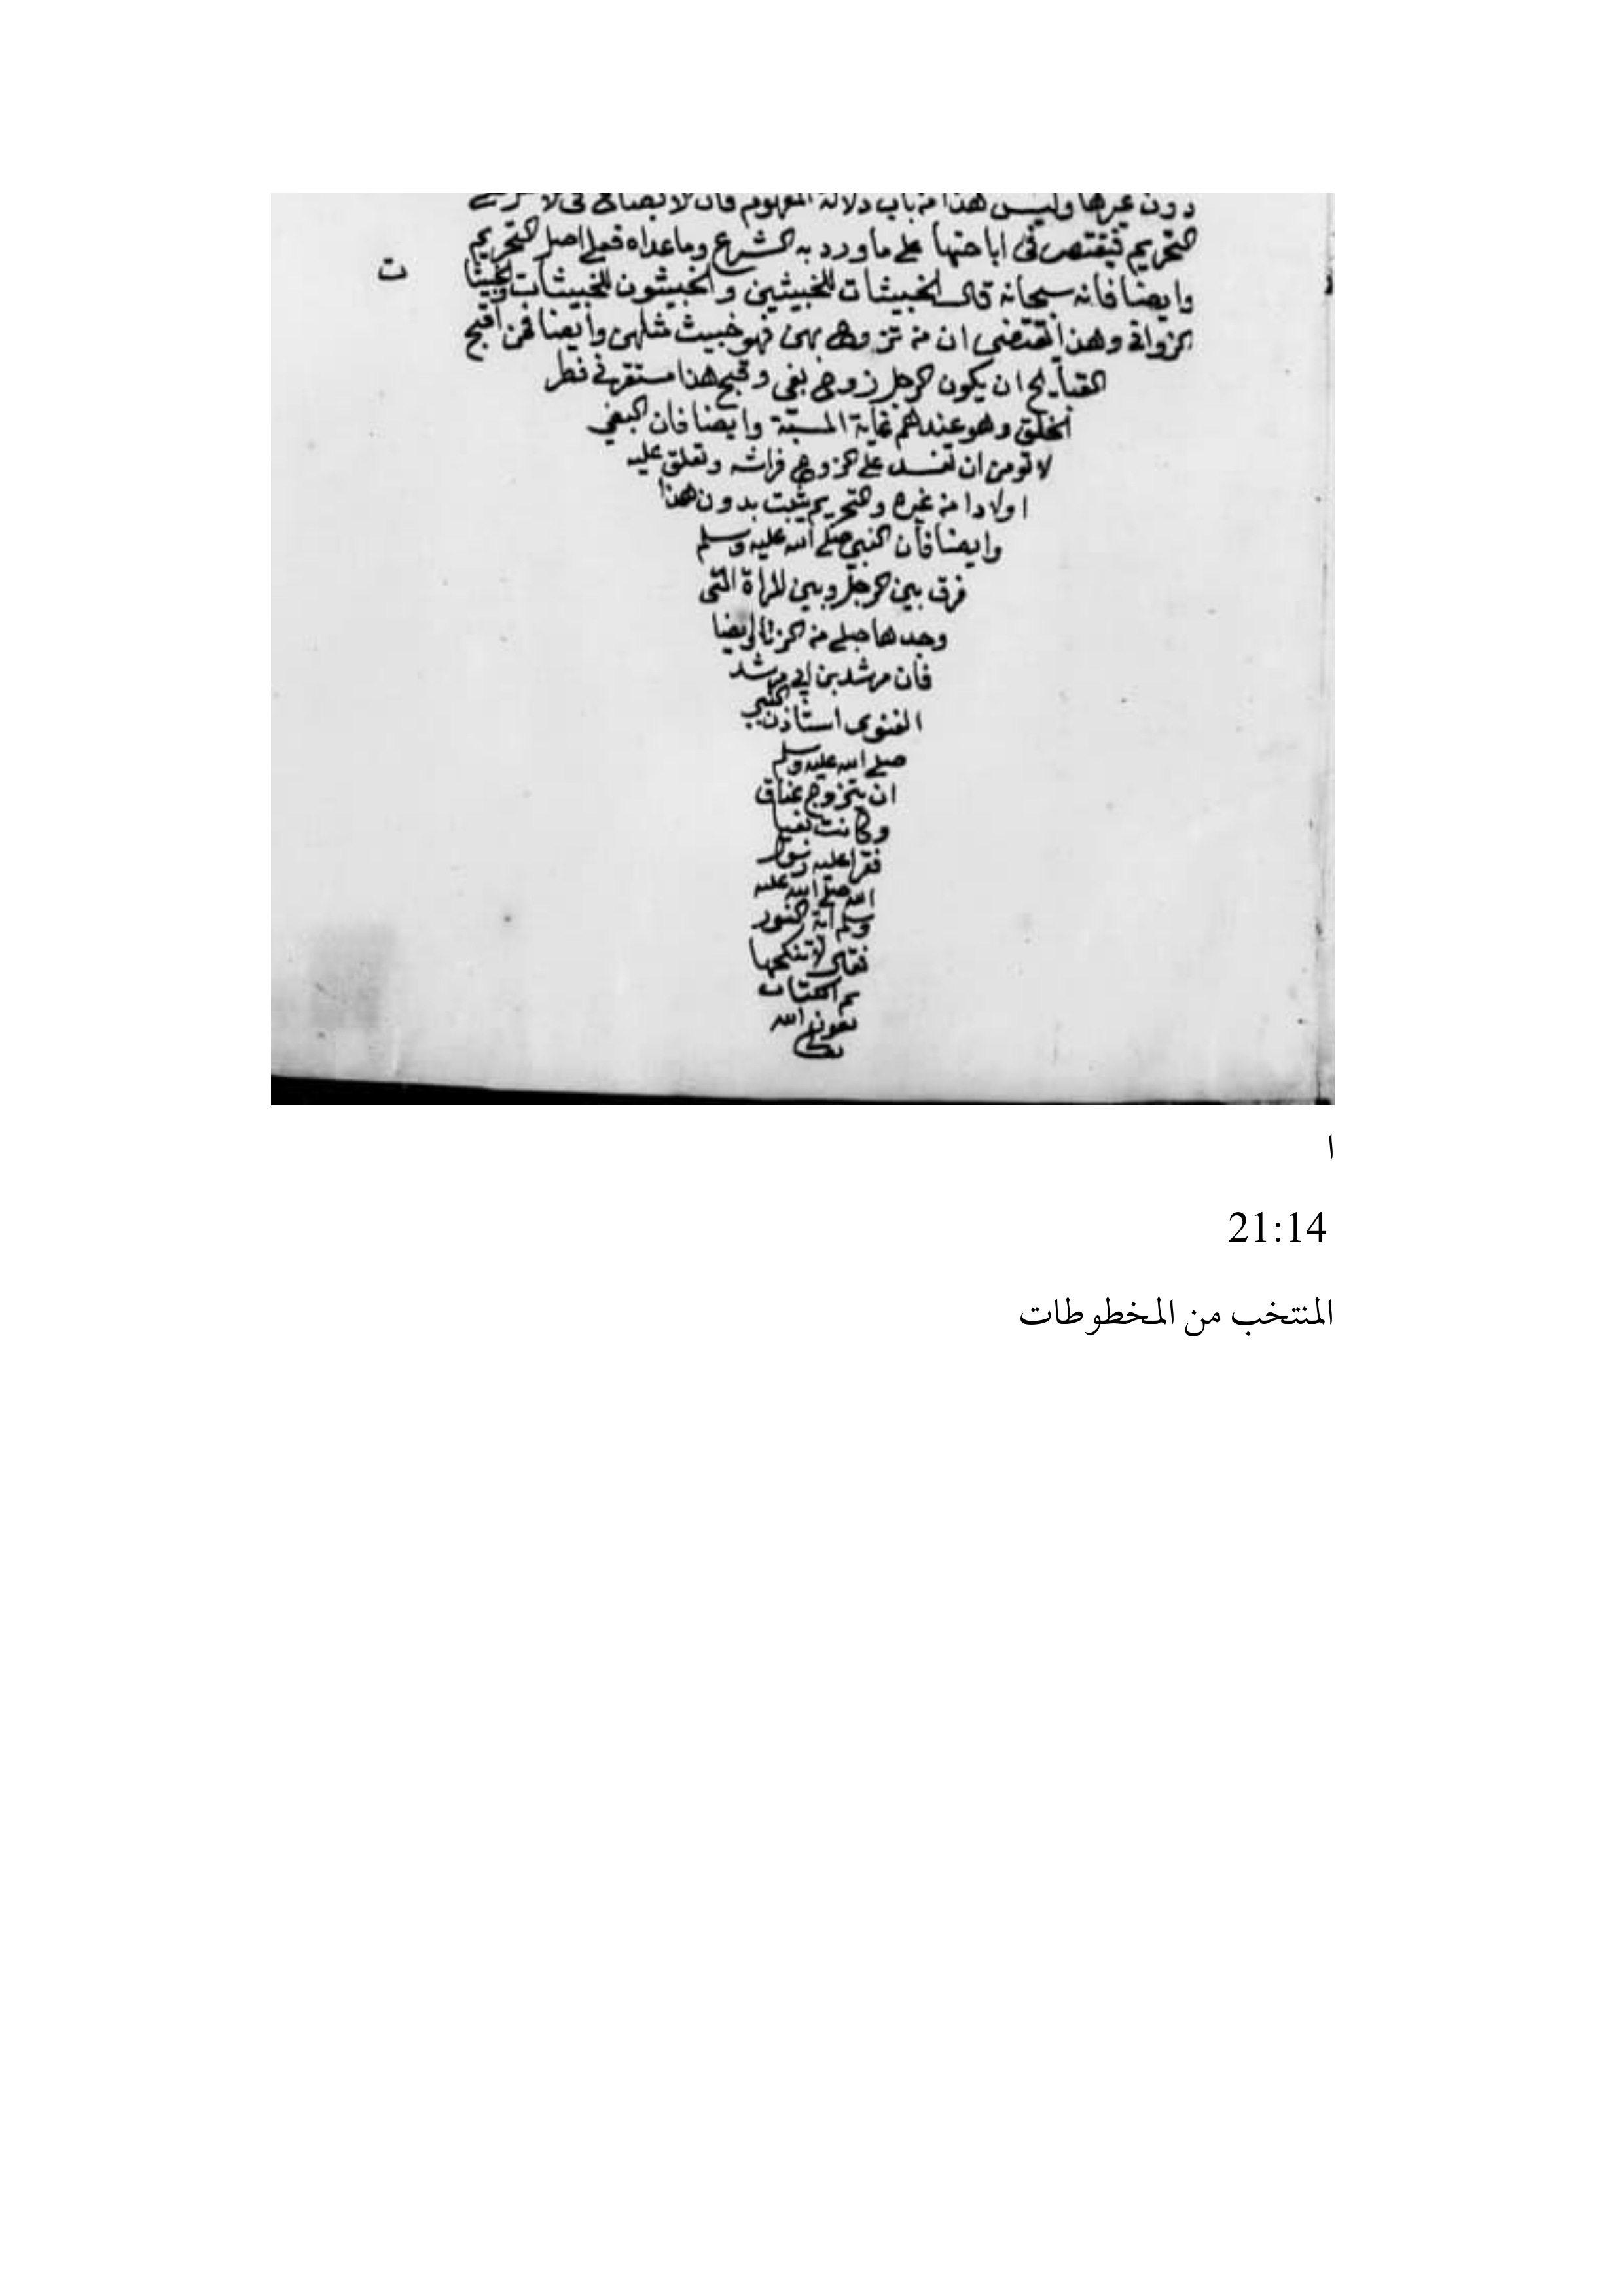 دون غيرها وليس هذا من باب دلالة المفهوم فان الابضاع في الاصل على
التحريم فيقتصر في اباحتها على ما ورد به الشرع وما عداه فعلى اصل التحريم
وايضا فانه سبحانه قال الخبيثات للخبيثين والخبيثون للخبيثات والخبيثا
ت
الزواني وهذا يقتضي ان من تزوج بهن فهو خبيث مثلهن وايضا فمن اقبح
القبايح ان يكون الرجل زوج بغي وقبح هذا مستقر في فطر
الخلق وهو عندهم غاية المسبة وايضا فان البغي
لا تومن ان تفسد على الزوج فراشه وتعلق عليه
اولادا من غيره والتحريم يثبت بدون هذا
وايضا فان النبي صلى الله عليه وسلم
فرق بين الرجل وبين المراة التي
وجدها حبلى من الزنا وايضا
فان مرثد بن ابي مرثد
الغنوي استاذن النبي
صلى الله عليه وسلم
ان يتزوج عناق
وكانت بغيا
فقرا عليه رسول
الله صلى الله عليه
وسلم اية النور
فقال لا تنكحها
تم الكتاب
بعون الله
تعالى
ا
21:14
المنتخب من المخطوطات